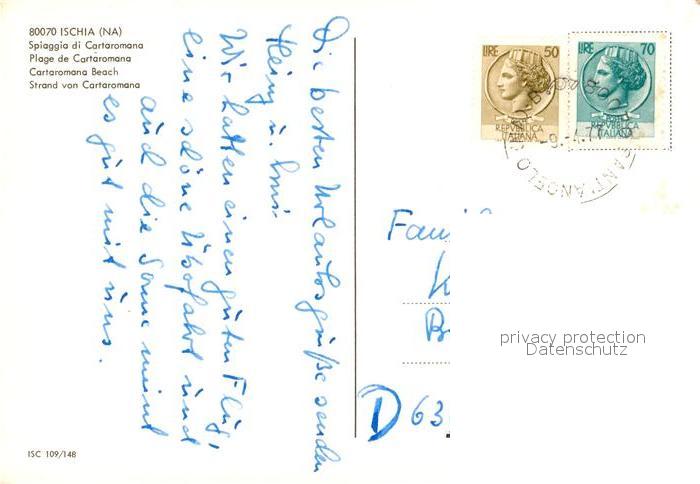 80070 ISCHIA (NA)
Spiaggia di Cartaromana
Plage de Cartaromana
Cartaromana Beach
Strand von Cartaromana
Die besten Urlaubsgrüße senden
Heinz u. Irmi
Wir hatten einen guten Flug,
eine schöne Überfahrt und
und die Sonne meint
es gut mit uns.
LIRE 50
REPVBBLICA
ITALIANA
LIRE 70
REPVBBLICA
ITALIANA
SANT'ANGELO
Fami
D 63
privacy protection
Datenschutz
ISC 109/148